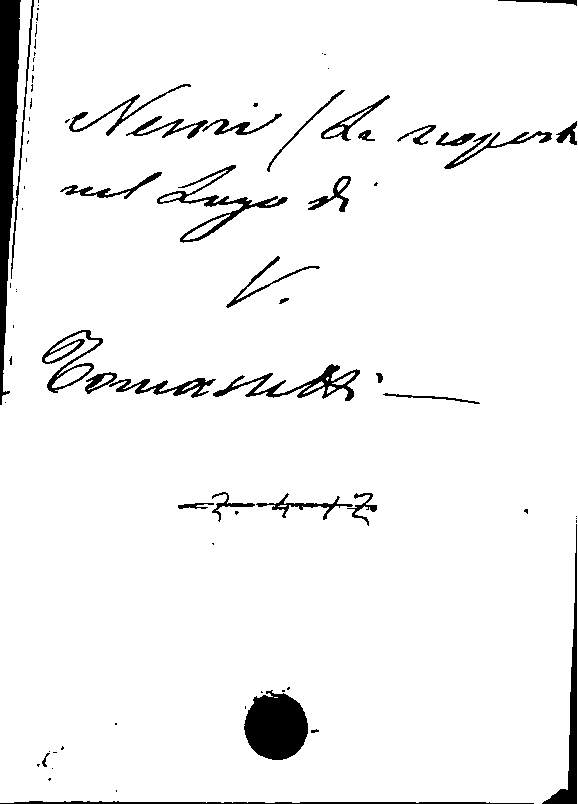 Nemi / La scoperta
nel Lago di
V.
Tomassetti
2. 4. 17.